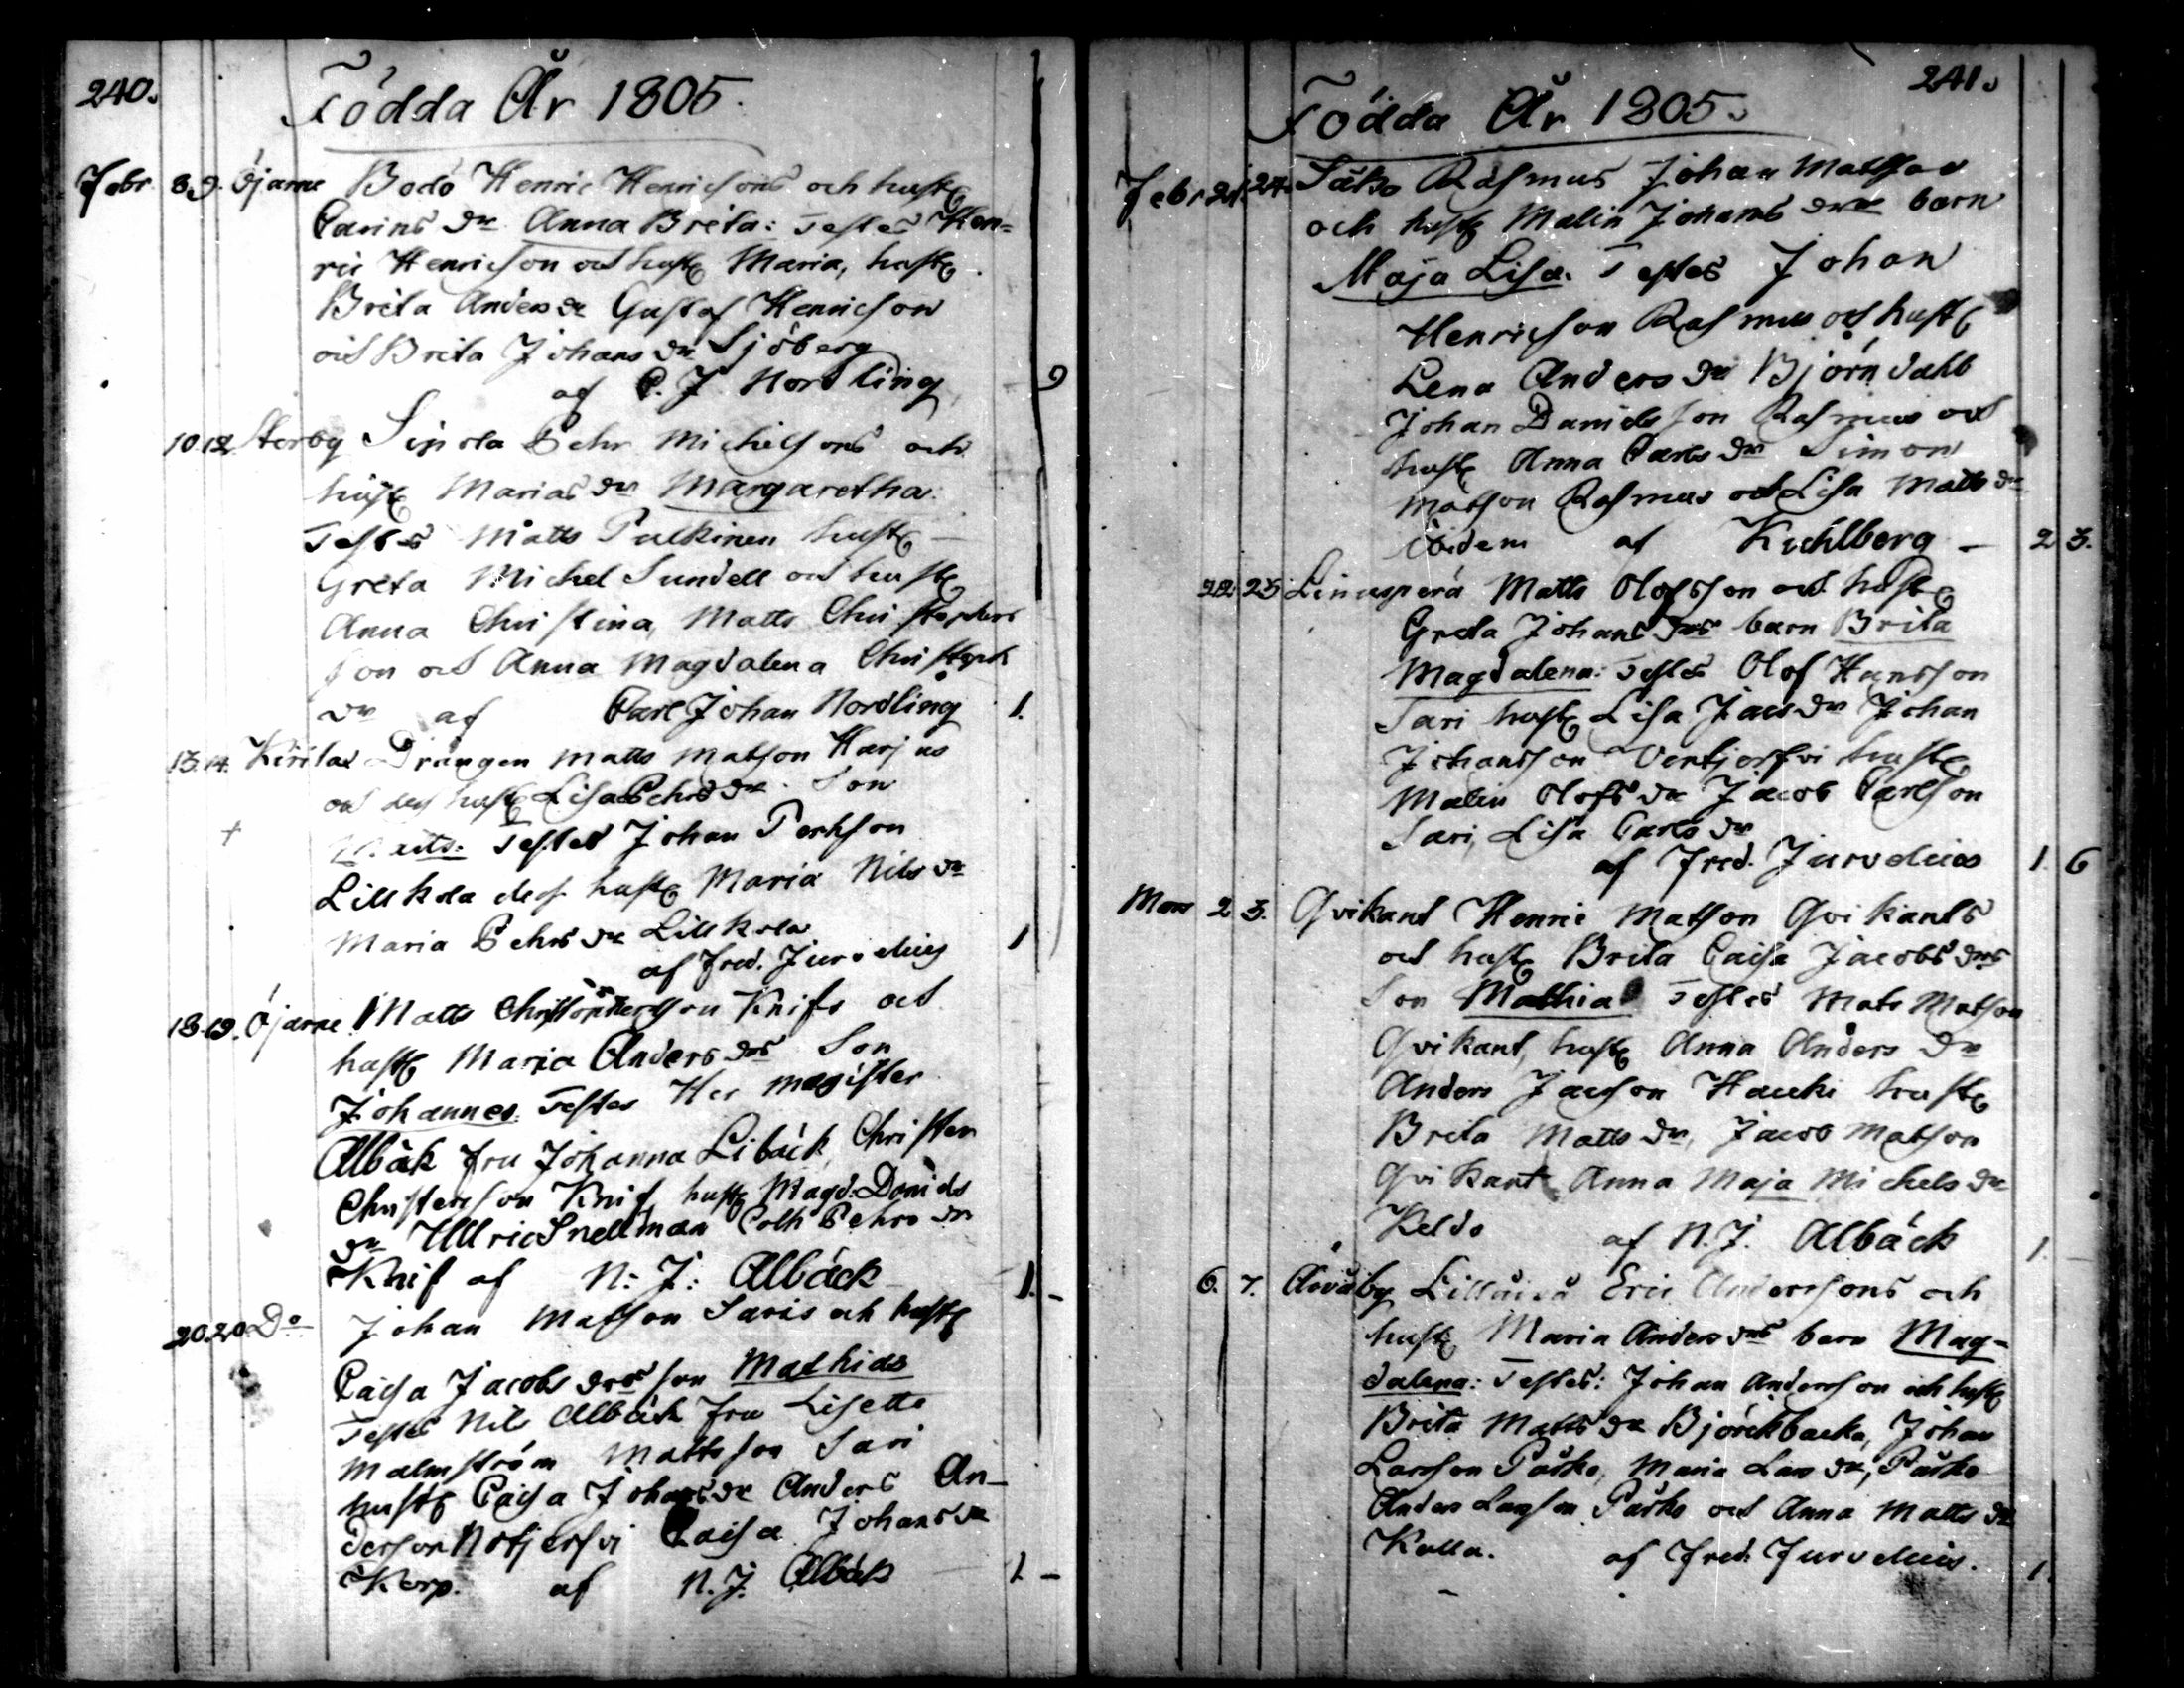 240.
Födda År 1805.
Febr. 8 9. Öjarne Bodö Henric Henricsons och hustr
Carins dr Anna Brita: Testes Hen=
ric Henricson och hustr Maria, hustr
Brita Anders dr Gustaf Henricson
och Brita Johans dr Sjöberg
af C. J. Nordling 9
10. 12 Storby Sipola Pehr Michelsons och
hustr Marias dr Margaretha:
Testes Matts Pulkinen hustr
Greta Michel Sundell och hustr
Anna Christina, Matts Christophers
son och Anna Magdalena Christoph
dr af Carl Johan Nordling 1.
13. 14. Drängen Matts Matson Harjus
och des hustr Lisa Pehrs dr Son
Testes Johan Perhson
Lillkola des hustr Maria Nils dr
Maria Pehrs dr Lillkola
af Fred. Jurvelius 1
18. 19. Öjarne Matts Christophersson Knifs och
hustr Maria Anders drs Son
Johannes. Testes Her Magister
Albäk fru Johanna Libäck, Christer
Christersson Knif hustr Magd: Daniels
dr Ullric Snellman Cath Pehrs dr
Knif af N: J: Albäck 1. -
20. 20. Do Johan Matson Saris och hustr
Caisa Jacobs drs son Mathias
Testes Nils Albäck fru Lisette
Malmström Mattsson Sari
hustr Caisa Johans dr Anders An-
dersson Caisa Johans dr
Korp. af N. J. Albäck 1 -
241.
Födda År 1805.
Febr 21. 24. Rasmus Johan Matsson
och hustr Malin Johans drs barn
Maja Lisa. Testes Johan
Henricson Rasmus och hustr
Lena Anders dr Björndahl
Johan Danielsson Rasmus och
hustr Anna Carls dr Simon
Matson Rasmus och Lisa Matts dr
ibidem af Kuhlberg - 2 3.
22. 25 Linusperä Matts Olofsson och hustr
Greta Johans drs barn Brita
Magdalena: Testes Olof Hansson
Sari hustr Lisa Jacs dr Johan
Johansson Ventjerfvi hustr
Malin Olofs dr Jacob Carlson
Sari, Lisa Carls dr
af Fred. Jurvelius 1. 6
Mars 2 3. Qvikant Henric Matson Qvikants
och hustr Brita Caisa Jacobs drs
Son Mathias Testes Mats Matson
Qvikant, hustr Anna Anders dr
Anders Jacson Hauki hustr
Brita Matts dr, Jacob Matson
Qvikant Anna Maja Michels dr
Keldo af N. J. Albäck 1.
6. 7. Eric Anderssons och
hustr Maria Anders drs barn Mag-
dalena: Testes: Johan Andersson och hustr
Brita Matts dr Björckbacka, Johan
Larsson Påsko, Maria Lars dr, Påsko
Anders Larsson Påsko och Anna Matts dr
Kalla. af Fred: Jurvelius. 1.